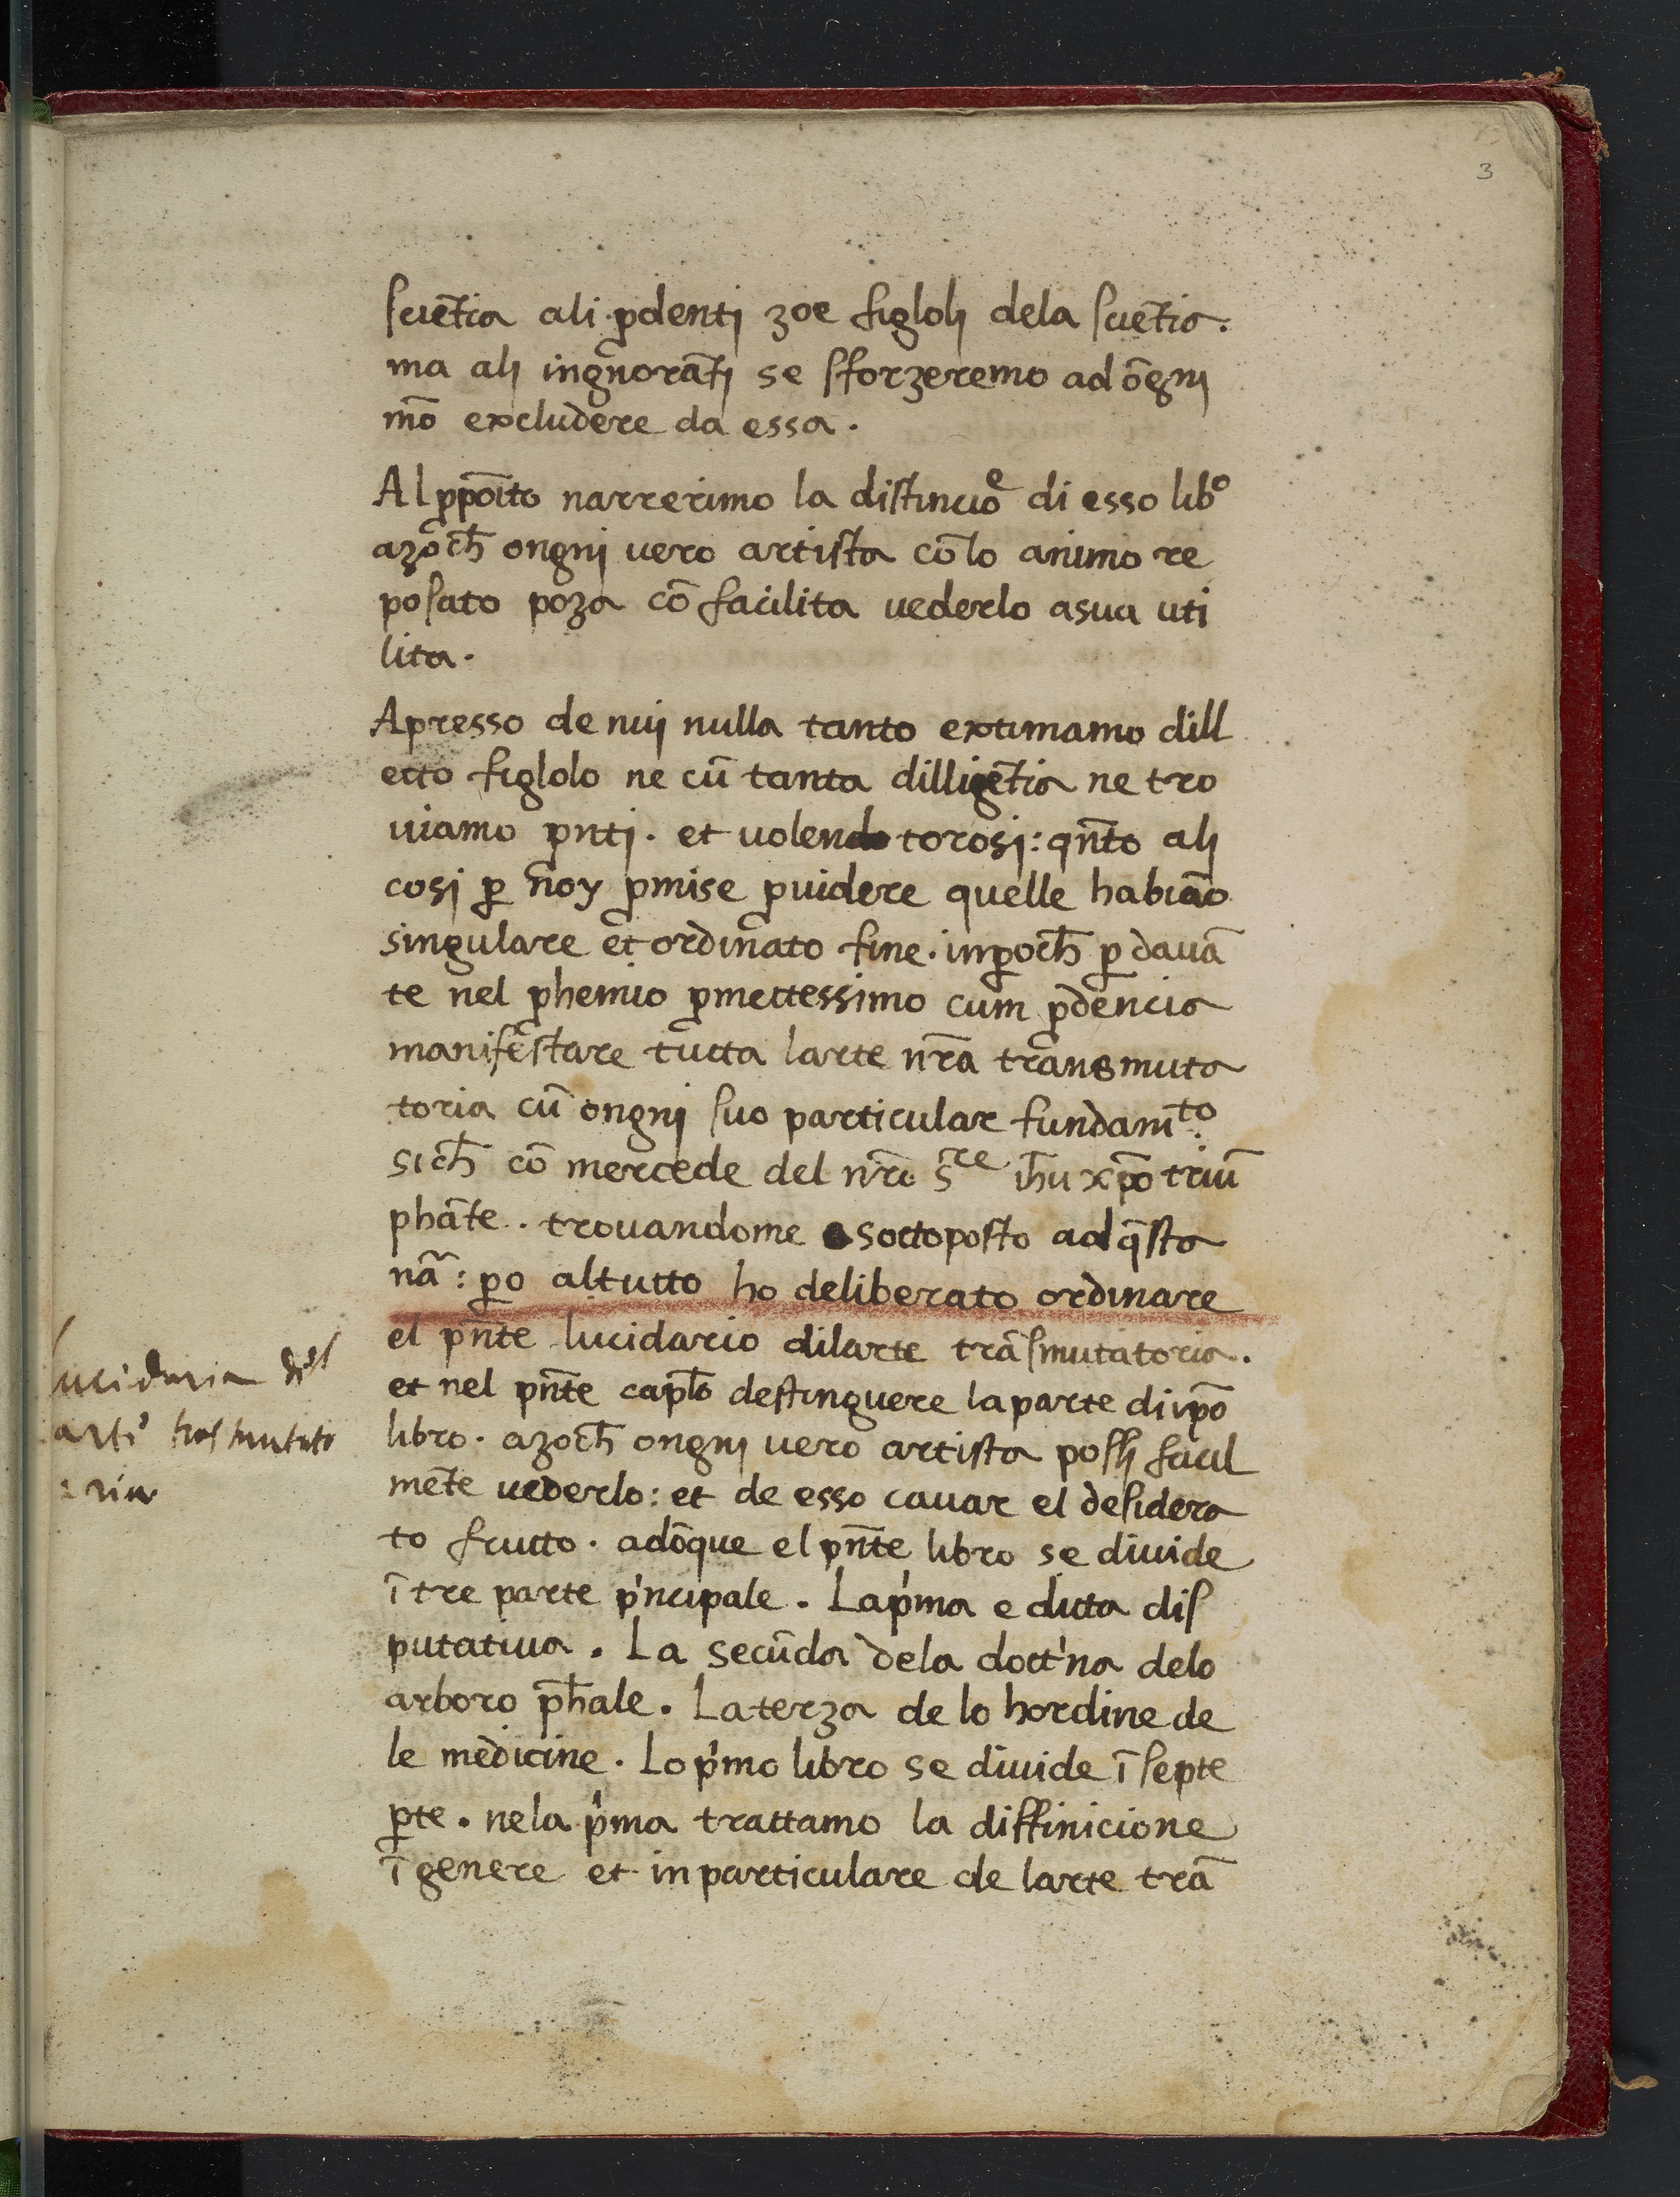 3
scie͞tia ali p̱denti zoe figloli dela scie͞tia.
ma ali ingnora͞ti se sforzeremo ad o͞gni
mo͞ excludere da essa.
Al ppo͞ito narrerimo la distincioe di esso libo
azoch̄ ongni uero artista co͞ lo animo re
posato poza co͞ facilita uederlo a sua uti
lita.
Apresso de nuj nulla tanto extimamo dill
etto figlolo ne cu͞ tanta dillige͞tia ne tro
uiamo pntj. et uolendo torosj: qn͞to ali
cosj ꝑ n͞oy pmise puidere quelle habiāo
singulare et ordinato fine. inꝑoch̄ ꝑ dauā
te nel phemio pmettessimo cum pdencia
manifestare tutta larte nr͞a transmuta
toria cu͞ ongnj suo particular fundamto.
sich̄ co͞ mercede del nr͞o s͞re ih̄u xp͞o triu͞
pha͞te. trouandome sottoposto ad q͞sta
na͞: ꝑo altutto ho deliberato ordinare
el pn͞te lucidario dilarte tra͞smutatoria.
et nel pn͞te capl͞o destinguere la parte di ip͞o
libro. azoch̄ ongni uero artista possi facil
me͞te uederlo: et de esso cauar el desidera
to frutto. ado͞que el pn͞te libro se diuide
ī tre parte p'ncipale. La p'ma e ditta dis
putatiua. La secu͞da dela dott'na delo
arboro ph̄ale. La terza de lo hordine de
le medicine. Lo p'mo libro se diuide ī septe
ꝑte. nela p'ma trattamo la diffinicione
ī genere et in particulare de larte trā
lucidaria del
arte trasmutato
ria